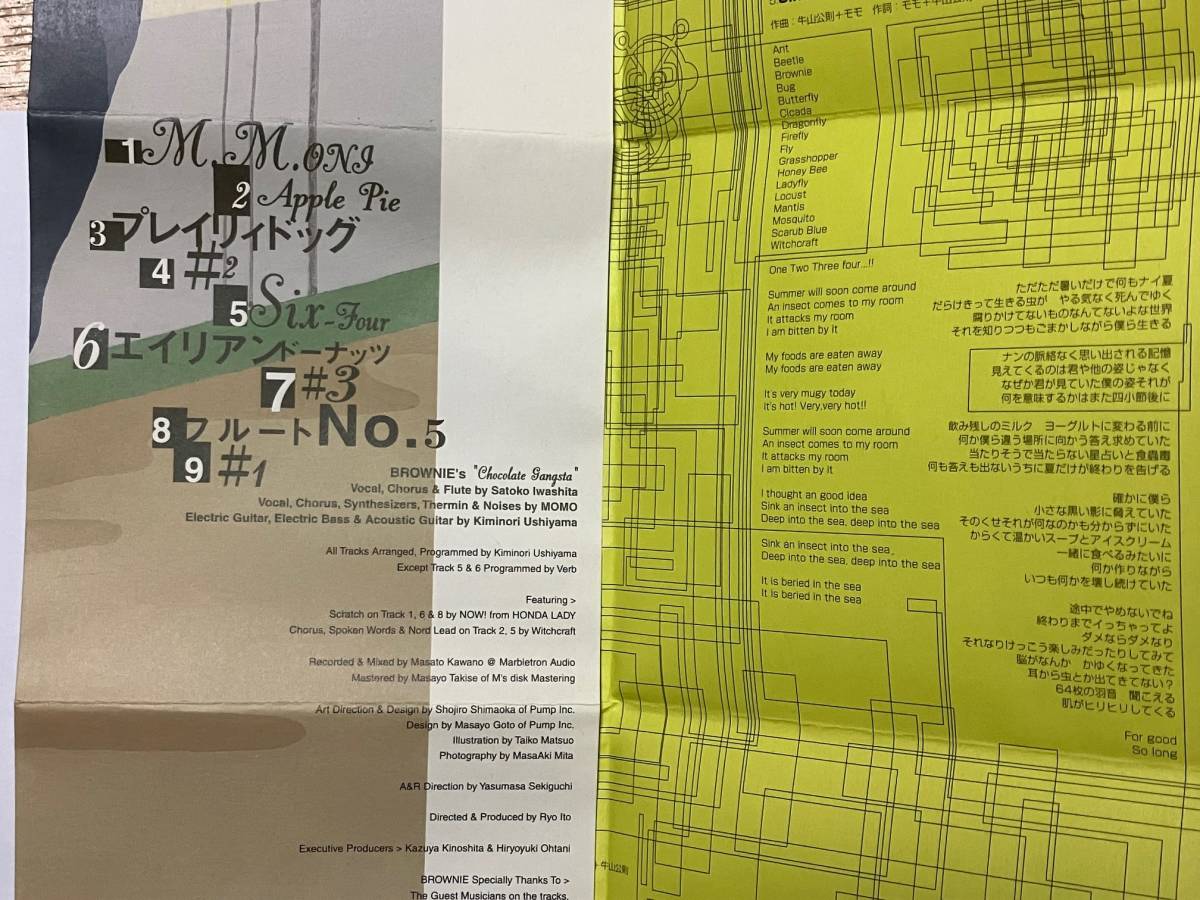 1 M.M.ONI
2 Apple Pie
3 プレイリィドッグ
4 #2
5 Six-Four
6 エイリアンドーナッツ
7 #3
8 フルートNo.5
9 #1
BROWNIE's "Chocolate Gangsta"
Vocal, Chorus & Flute by Satoko Iwashita
Vocal, Chorus, Synthesizers, Thermin & Noises by MOMO
Electric Guitar, Electric Bass & Acoustic Guitar by Kiminori Ushiyama
All Tracks Arranged, Programmed by Kiminori Ushiyama
Except Track 5 & 6 Programmed by Verb
Featuring >
Scratch on Track 1, 6 & 8 by NOW! from HONDA LADY
Chorus, Spoken Words & Nord Lead on Track 2, 5 by Witchcraft
Recorded & Mixed by Masato Kawano @ Marbletron Audio
Mastered by Masayo Takise of M's disk Mastering
Art Direction & Design by Shojiro Shimaoka of Pump Inc.
Design by Masayo Goto of Pump Inc.
Illustration by Taiko Matsuo
Photography by MasaAki Mita
A&R Direction by Yasumasa Sekiguchi
Directed & Produced by Ryo Ito
Executive Producers > Kazuya Kinoshita & Hiryoyuki Ohtani
BROWNIE Specially Thanks To >
The Guest Musicians on the tracks,
作曲:牛山公則+モモ 作詞:モモ+牛山公則
Ant
Beetle
Brownie
Bug
Butterfly
Cicada
Dragonfly
Firefly
Fly
Grasshopper
Honey Bee
Ladyfly
Locust
Mantis
Mosquito
Scarub Blue
Witchcraft
One Two Three four...!!
Summer will soon come around
An insect comes to my room
It attacks my room
I am bitten by It
My foods are eaten away
My foods are eaten away
It's very mugy today
It's hot! Very,very hot!!
Summer will soon come around
An insect comes to my room
It attacks my room
I am bitten by It
I thought an good idea
Sink an insect into the sea
Deep into the sea, deep into the sea
Sink an insect into the sea
Deep into the sea, deep into the sea
It is beried in the sea
It is beried in the sea
ただただ暑いだけで何もナイ夏
だらけきって生きる虫が やる気なく死んでゆく
腐りかけてないものなんてないよな世界
それを知りつつもごまかしながら僕ら生きる
ナンの脈絡なく思い出される記憶
見えてくるのは君や他の姿じゃなく
なぜか君が見ていた僕の姿それが
何を意味するかはまた四小節後に
飲み残しのミルク ヨーグルトに変わる前に
何か僕ら違う場所に向かう答え求めていた
当たりそうで当たらない星占いと食蟲毒
何も答えも出ないうちに夏だけが終わりを告げる
確かに僕ら
小さな黒い影に脅えていた
そのくせそれが何なのかも分からずにいた
からくて温かいスープとアイスクリーム
一緒に食べるみたいに
何か作りながら
いつも何かを壊し続けていた
途中でやめないでね
終わりまでイっちゃってよ
ダメならダメなり
それなりけっこう楽しみだったりしてみて
脳がなんか かゆくなってきた
耳から虫とか出てきてない?
64枚の羽音 聞こえる
肌がヒリヒリしてくる
For good
So long
+牛山公則